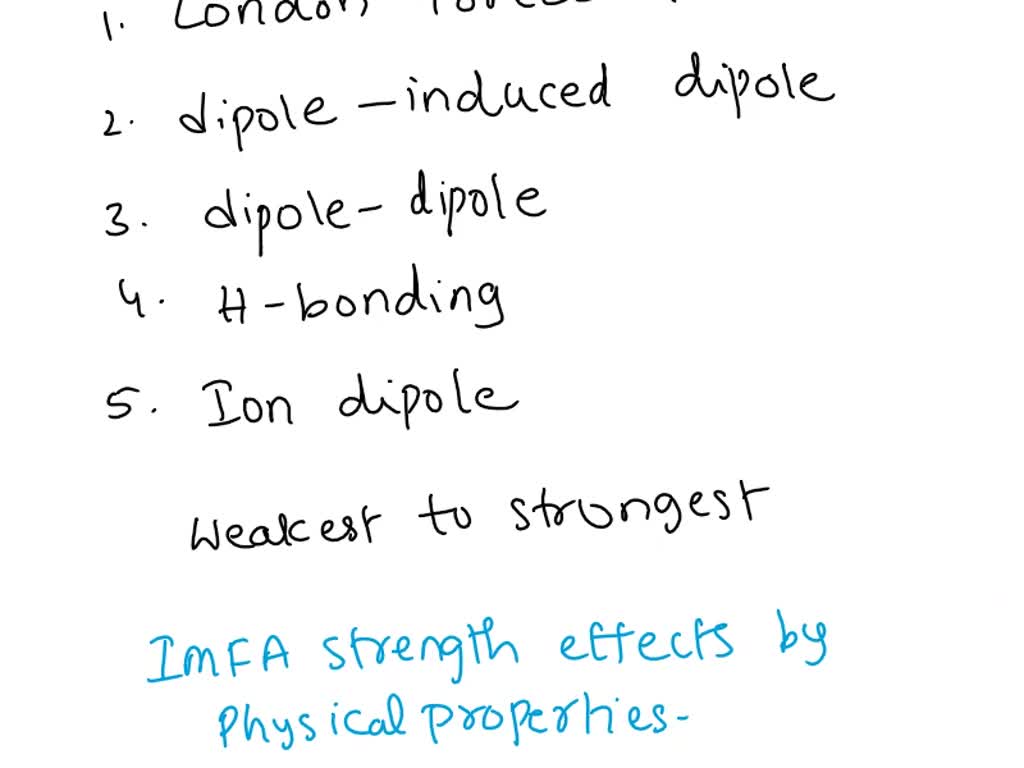 1. London forces
2. dipole - induced dipole
3. dipole - dipole
4. H - bonding
5. Ion dipole
Weakest to strongest
ImFA strength effects by
Physical properties -